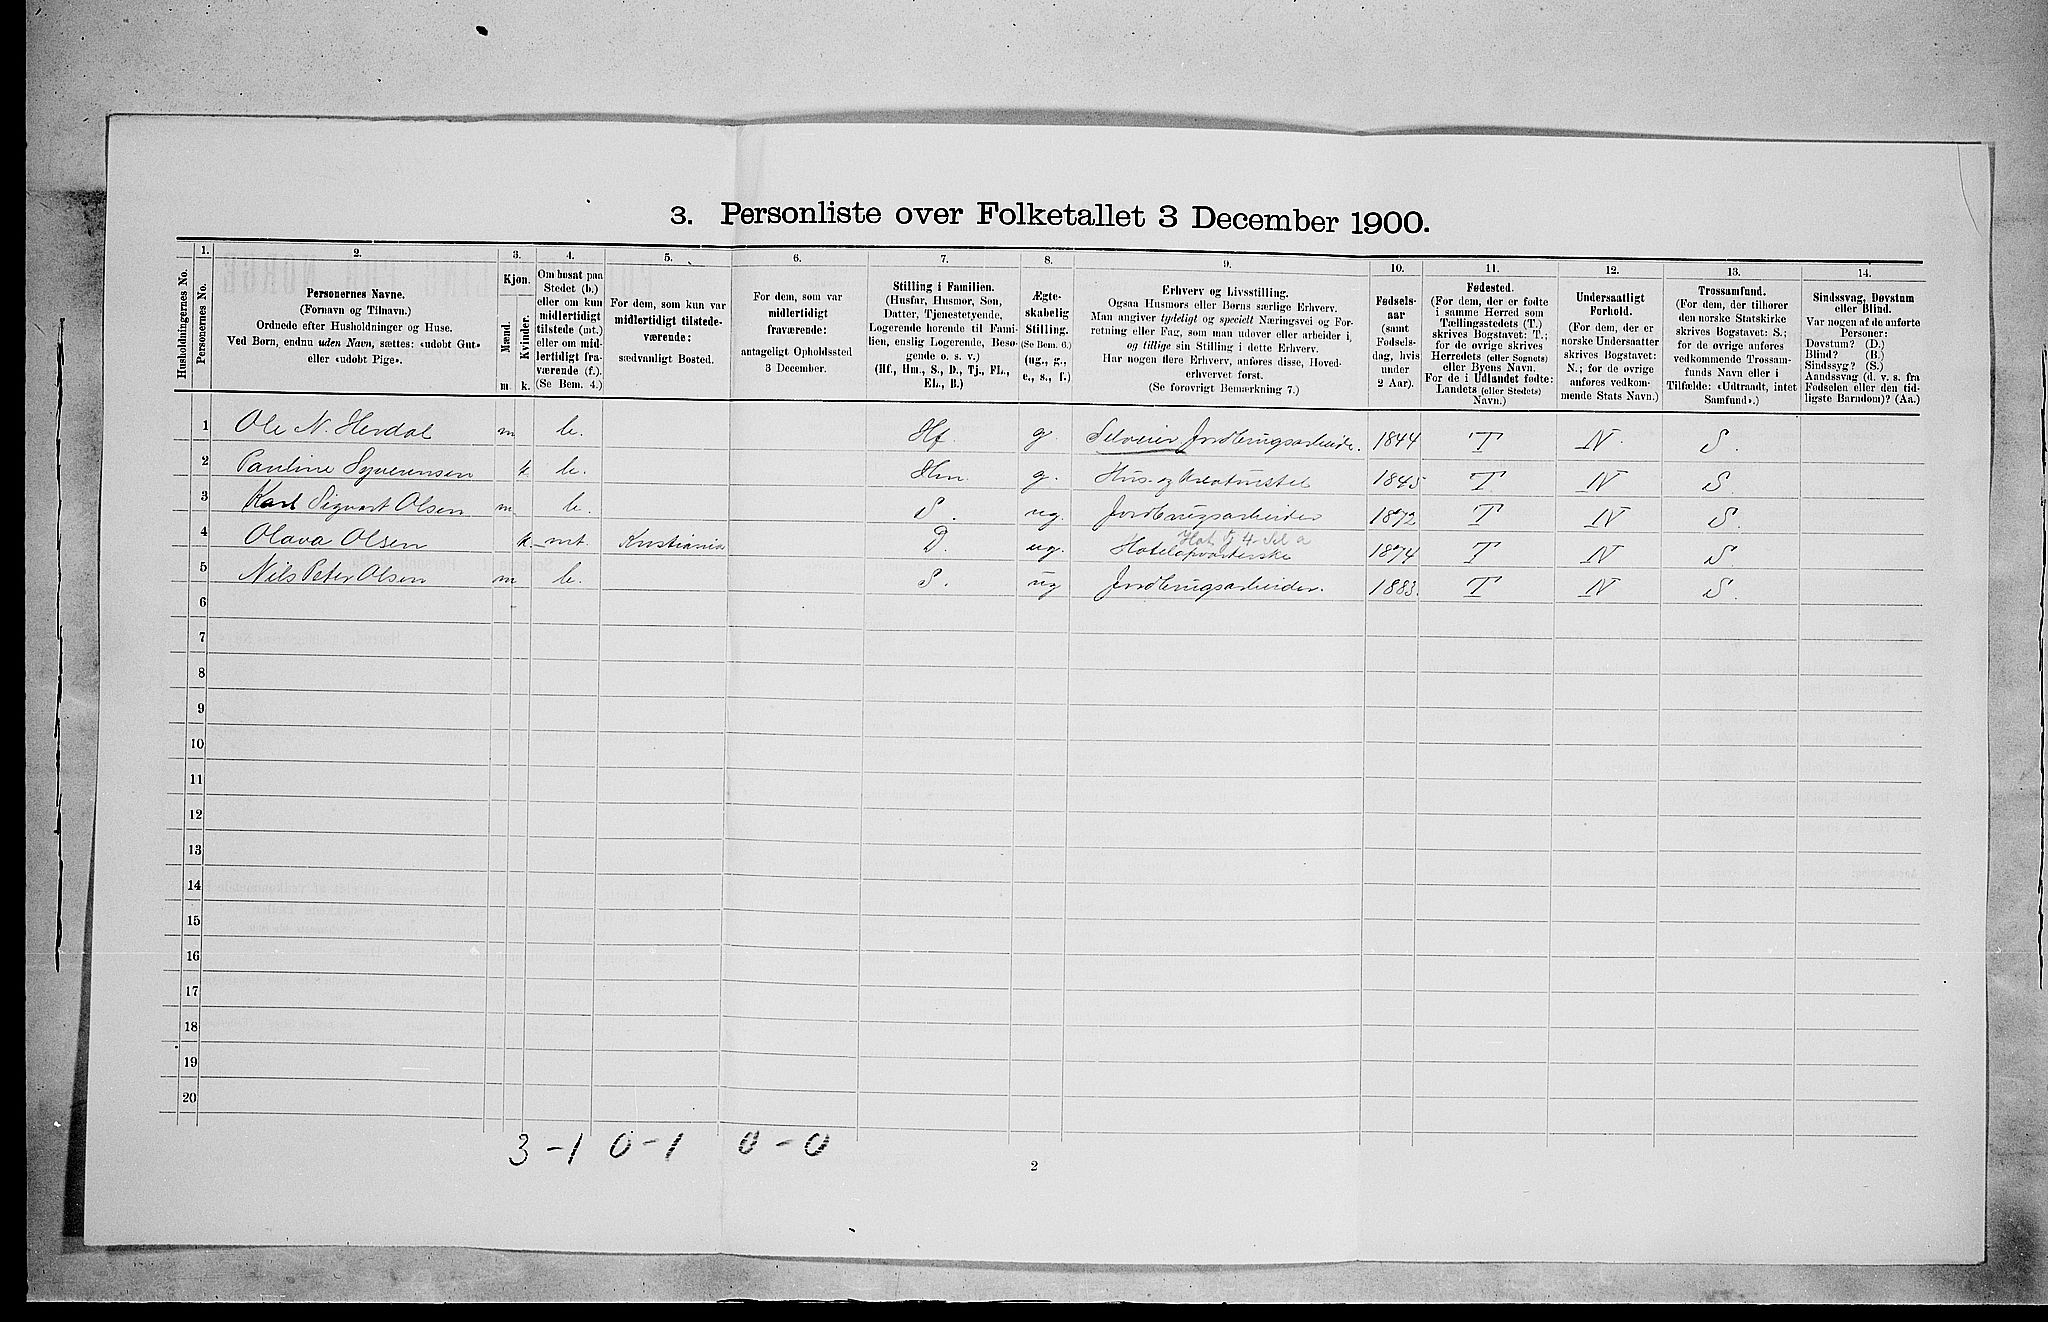 3. Personliste over Folketallet 3 December 1900.
Husholdningernes No.
1.
Personernes No.
2.
Personernes Navne.
(Fornavn og Tilnavn.)
Ordnede efter Husholdninger og Huse.
Ved Børn, endnu uden Navn, sættes: «udøbt Gut»
eller «udøbt Pige».
3.
Kjøn.
Mænd.
Kvinder.
m.
k.
4.
Om bosat paa
Stedet (b.)
eller om kun
midlertidigt
tilstede (mt.)
eller om mid-
lertidigt fra-
værende (f.).
(Se Bem. 4.)
5.
For dem, som kun var
midlertidigt tilstede-
værende:
sædvanligt Bosted.
6.
For dem, som var
midlertidigt
fraværende:
antageligt Opholdssted
3 December.
7.
Stilling i Familien.
(Husfar, Husmor, Søn,
Datter, Tjenestetyende,
Logerende hørende til Fami-
lien, enslig Logerende, Besø-
gende o. s. v.)
(Hf., Hm., S., D., Tj., FL.,
EL., B.)
8.
Ægte-
skabelig
Stilling.
(Se Bem. 6.)
(ug., g.,
e., s., f.)
9.
Erhverv og Livsstilling.
Ogsaa Husmors eller Børns særlige Erhverv.
Man angiver tydeligt og specielt Næringsvei og For-
retning eller Fag, som man udøver eller arbeider i,
og tillige sin Stilling i dette Erhverv.
Har nogen flere Erhverv, anføres disse, Hoved-
erhvervet først.
(Se forøvrigt Bemærkning 7.)
10.
Fødsels-
aar
(samt
Fødsels-
dag, hvis
under
2 Aar).
11.
Fødested.
(For dem, der er fødte
i samme Herred som
Tællingsstedets (T.)
skrives Bogstavet: T.;
for de øvrige skrives
Herredets (eller Sognets)
eller Byens Navn.
For de i Udlandet fødte:
Landets (eller Stedets)
Navn.)
12.
Undersaatligt
Forhold.
(For dem, der er
norske Undersaatter
skrives Bogstavet:
N.; for de øvrige
anføres vedkom-
mende Stats Navn.)
13.
Trossamfund.
(For dem, der tilhører
den norske Statskirke
skrives Bogstavet: S.;
for de øvrige anføres
vedkommende Trossam-
funds Navn eller i
Tilfælde: «Udtraadt, intet
Samfund».)
14.
Sindssvag, Døvstum
eller Blind.
Var nogen af de anførte
Personer:
Døvstum? (D.)
Blind? (B.)
Sindssyg? (S.)
Aandssvag (d. v. s. fra
Fødselen eller den tid-
ligste Barndom)? (Aa.)
1 Ole N. Herdal m b. Hf. g. Selveier Jordbrugsarbeider. 1844 T N. S.
2 Pauline Syverensen k b. Hm. g. Hus- og Kreaturstel 1845 T N S.
3 Karl Sigvart Olsen m b. S. ug. Jordbrugsarbeider 1872 T N S.
4 Olava Olsen k. mt. Kristiania D. ug. Hotelopvarterske 1874 T N S.
5 Nils Peter Olsen m b. S. ug Jordbrugsarbeider. 1883. T N S.
6
7
8
9
10
11
12
13
14
15
16
17
18
19
20
3 - 1 0 - 1 0 - 0
2